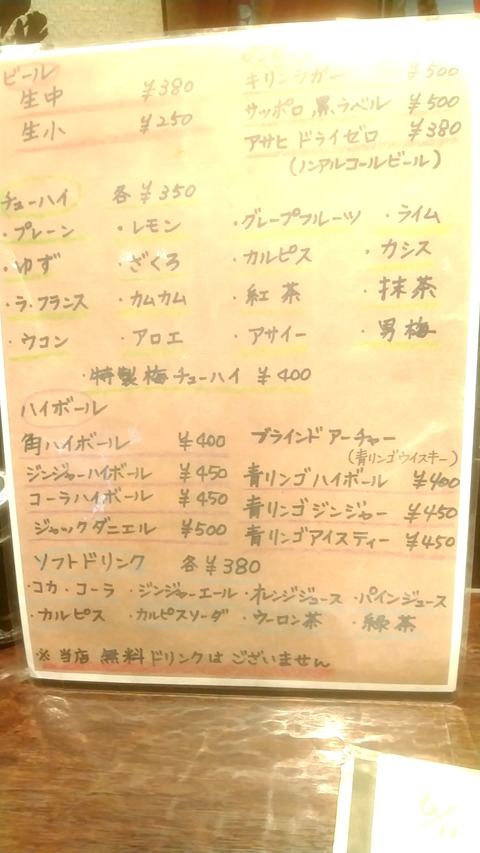 ビール
生中 ¥380
生小 ¥250
キリンラガー ¥500
サッポロ黒ラベル ¥500
アサヒ ドライゼロ ¥380
(ノンアルコールビール)
チューハイ 各¥350
・プレーン ・レモン ・グレープフルーツ ・ライム
・ゆず ・ざくろ ・カルピス ・カシス
・ラ・フランス ・カムカム ・紅茶 ・抹茶
・ウコン ・アロエ ・アサイー ・男梅
・特製梅チューハイ ¥400
ハイボール
角ハイボール ¥400
ジンジャーハイボール ¥450
コーラハイボール ¥450
ジャックダニエル ¥500
ブラインドアーチャー
(青リンゴウイスキー)
青リンゴハイボール ¥400
青リンゴジンジャー ¥450
青リンゴアイスティー ¥450
ソフトドリンク 各¥380
・コカ・コーラ ・ジンジャーエール ・オレンジジュース ・パインジュース
・カルピス ・カルピスソーダ ・ウーロン茶 ・緑茶
※当店無料ドリンクはございません